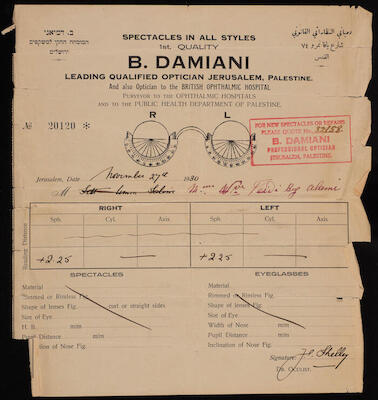 ב. דמיאני
המומחה החוקי למשקפים
ירושלים
SPECTACLES IN ALL STYLES
1st. QUALITY
دمياني النظاراتي القانوني
شارع يافا نمرو ٧٤
القدس
B. DAMIANI
LEADING QUALIFIED OPTICIAN JERUSALEM, PALESTINE.
And also Optician to the BRITISH OPHTHALMIC HOSPITAL
PURVEYOR TO THE OPHTHALMIC HOSPITALS
AND TO THE PUBLIC HEALTH DEPARTMENT OF PALESTINE.
№ 20120 *
R L
FOR NEW SPECTACLES OR REPAIRS
PLEASE QUOTE No. 37158
B. DAMIANI
PROFESSIONAL OPTICIAN
JERUSALEM, PALESTINE.
Jerusalem, Dat November 27th 1930
M
RIGHT LEFT
Sph. Cyl. Axis Sph. Cyl. Axis
Reading Distance
+2.25 +2.25
SPECTACLES EYEGLASSES
Material
Rimmed or Rimless Fig.
Shape of lenses Fig. curl or straight sides
Size of Eye mm
H. B. mm
Pupil Distance mm
ation of Nose Fig.
Material
Rimmed or Rimless Fig.
Shape of Lenses Fig.
Size of Eye mm
Width of Nose mm
Pupil Distance mm
Inclination of Nose Fig.
Signature: Shelley
DR. OCULIST.